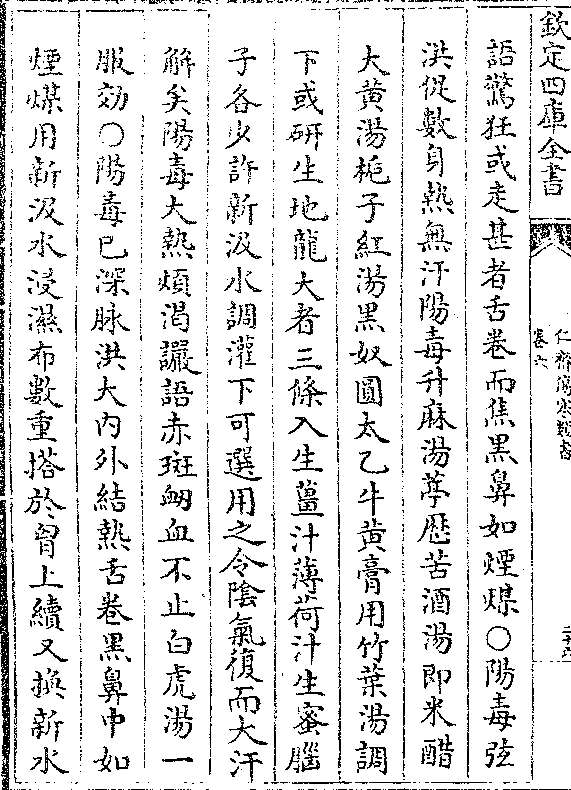 欽定四庫全書
仁齋傷寒類書
卷六
語驚狂或走甚者舌卷而焦黑鼻如煙煤○陽毒弦
洪促數身熱無汗陽毒升麻湯葶歴苦酒湯即米醋
大黄湯梔子紅湯黑奴圓太乙牛黄膏用竹葉湯調
下或研生地龍大者三條入生薑汁薄荷汁生蜜腦
子各少許新汲水調灌下可選用之令隂氣復而大汗
解矣陽毒大熱煩渴讝語赤斑衂血不止白虎湯一
服効○陽毒已深脉洪大内外結熱舌卷黑鼻中如
煙煤用新汲水浸濕布數重搭於胷上續又換新水